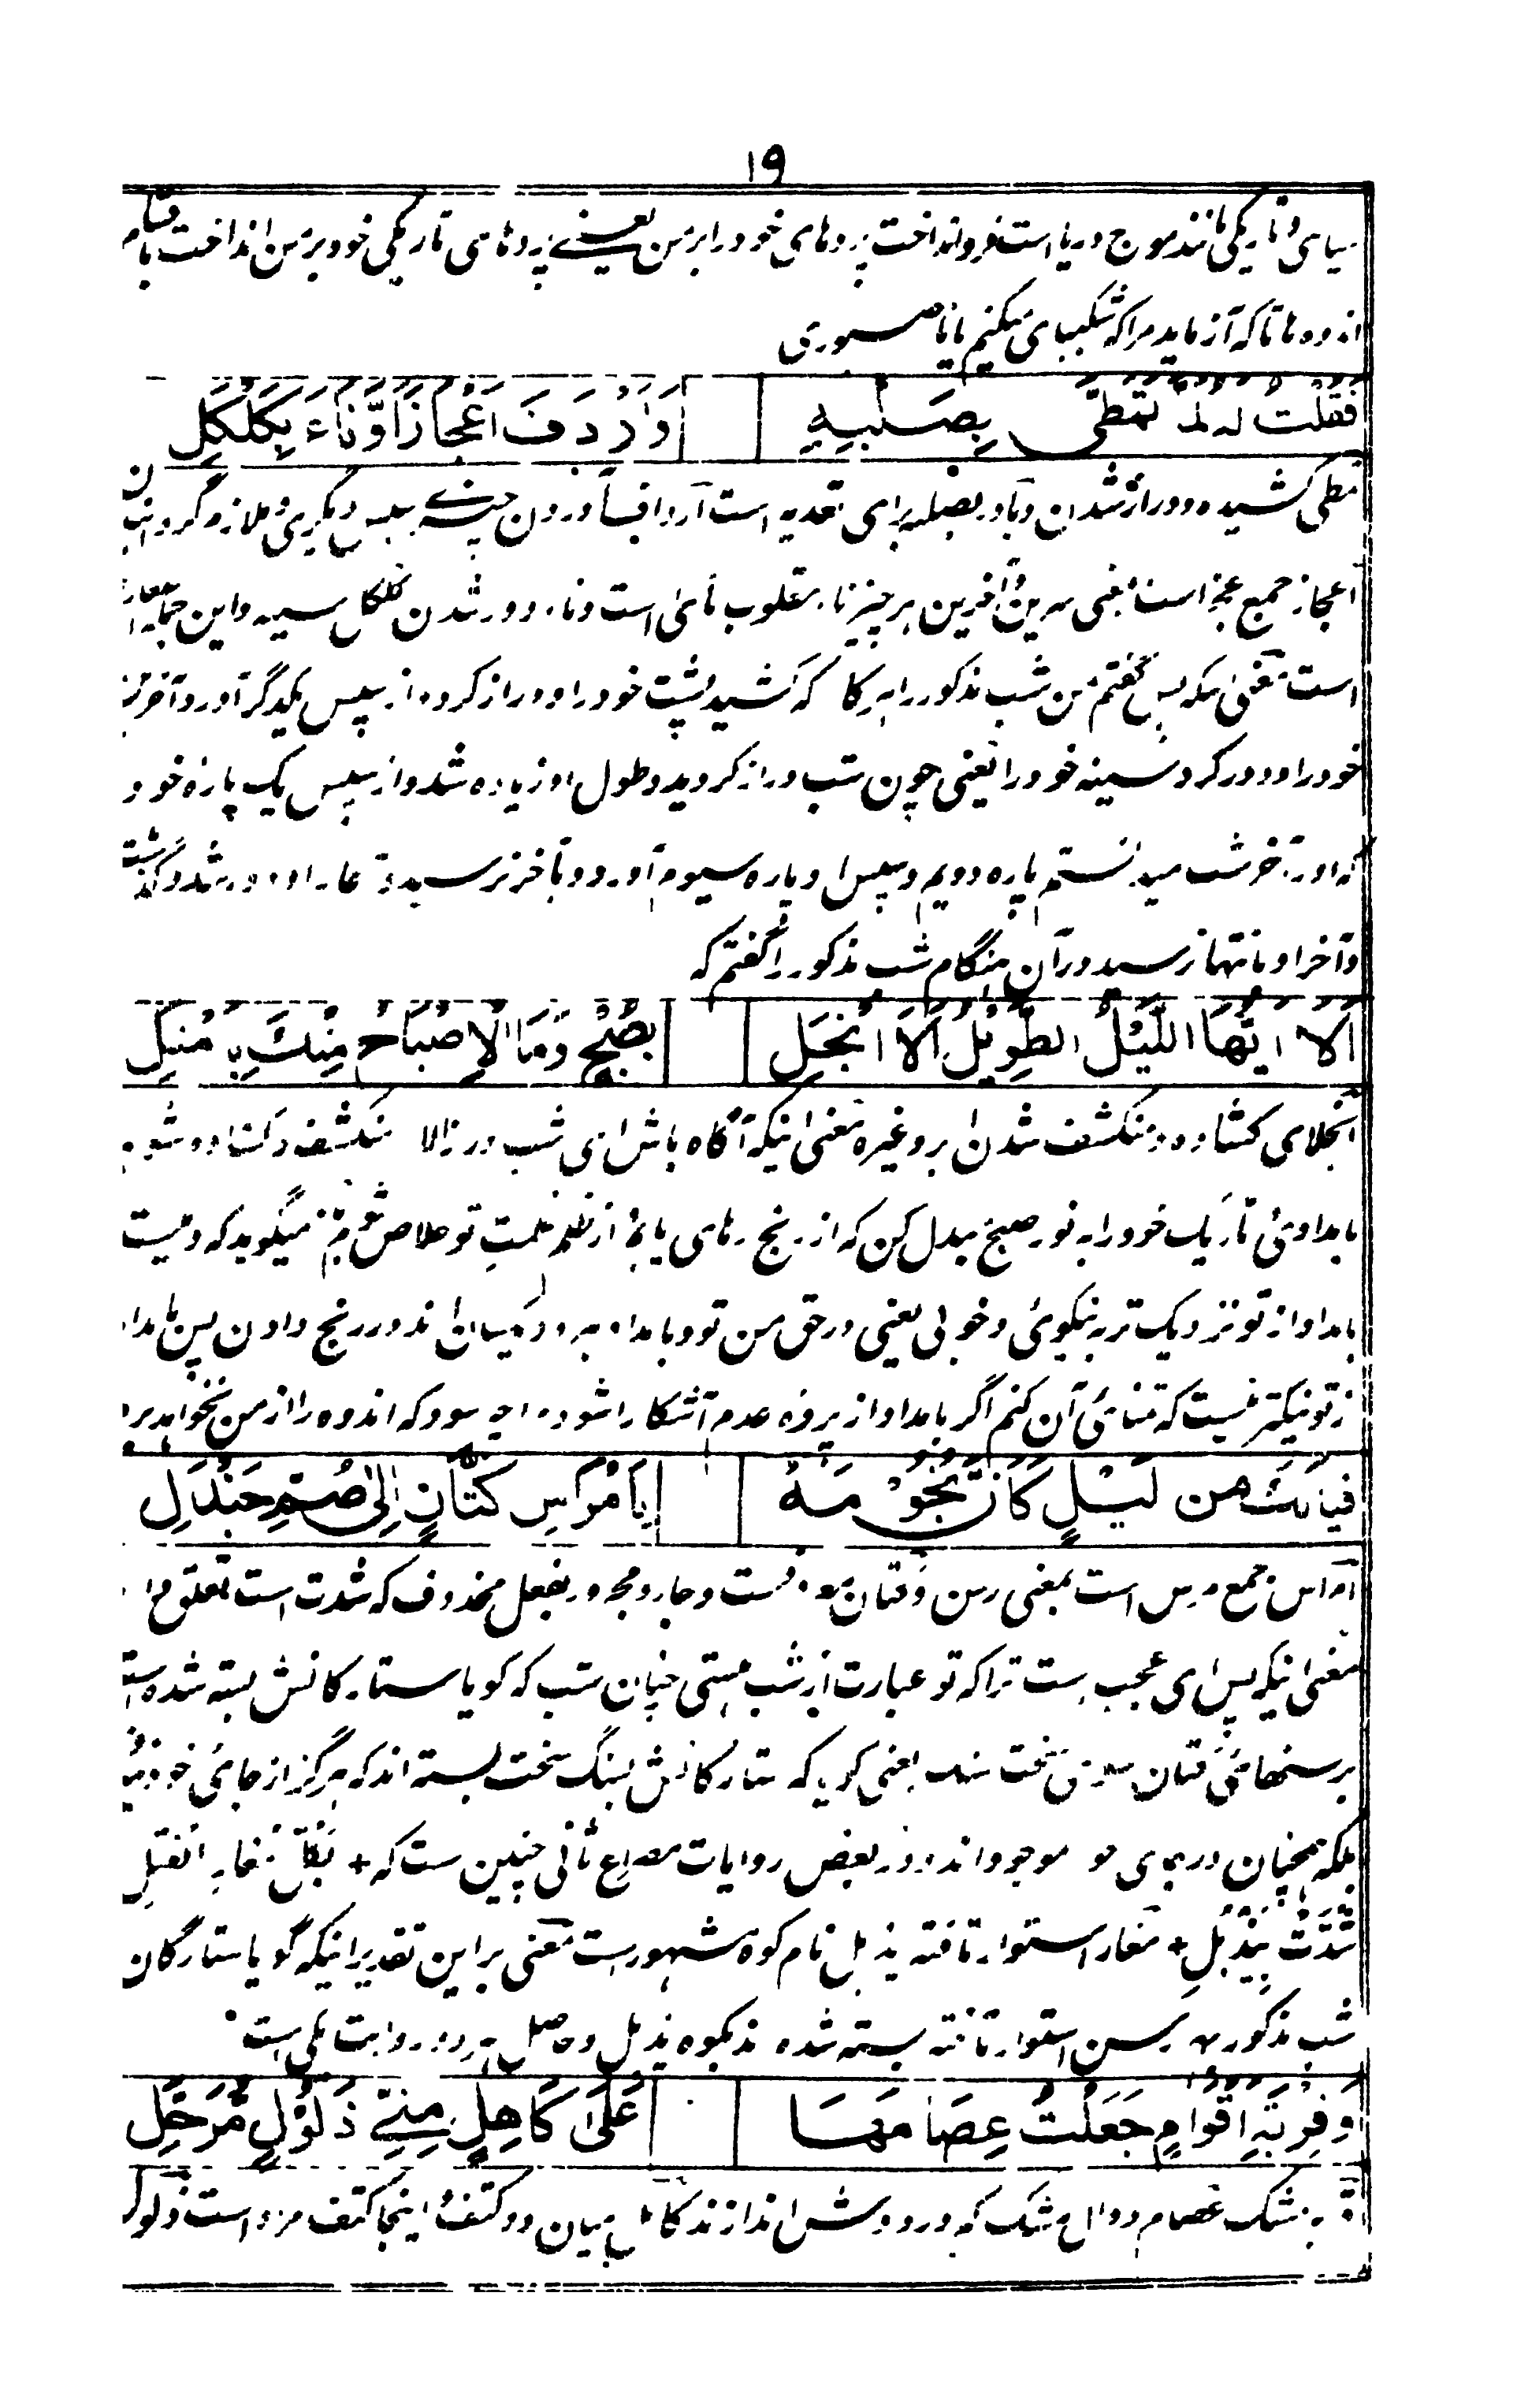 ۱۹
سیاهی و تاریکی مانند موج دریا است فرو انداخت پردهای خود را بر من یعنے پردهای تاریکی خود بر من انداخت باقسام
اندوه ها تا که آزماید مرا که شکیبای میکنم یا ناصبوری
فَقُلْتُ لَهُ لَمَّا تَمَطّٰی بِصُلْبِهٖ اَوَاَرْدَفَ اَعْجَازًا وَّنَاءَ بِکَلْکَلِ
تمطی کشیده و دراز شدن و با در بصلبه برای تعدیه است ارداف آوردن چیزے سپس دیگری و لازم گردانیدن
اعجاز جمع عجز است بمعنی سرین و آخرین هر چیز ناء مقلوب نأی است و ناء دور شدن کلکل سینه و این
است معنی اینکه پس گفتم من شب مذکور را که کشید پشت خود را و دراز کرد و از سپس یکدگر آورد آخر
خود را و دور کرد سینه خود را یعنی چون شب دراز گردید و طول او زیاده شد و از سپس یک پاره خود
که او را آخر شب میدانستم پاره دویم و سپس او پاره سیوم آورد و بآخر نرسید و او دور شد و گذشت
و آخر او بانتها نرسید در آن هنگام شب مذکور را گفتم که
اَلَا اَیُّهَا اللَّیْلُ الطَّوِیْلُ اَلَا انْجَلِ بِصُبْحٍ وَّمَا الْاِصْبَاحُ مِنْکَ بِاَمْثَلِ
انجلای کشاده و منکشف شدن ابر و غیره معنی اینکه آگاه باش ای شب دراز الا منکشف و کشاده شو
بامداد و تاریک خود را به نور صبح مبدل کن که از رنج رهای یابم از ظلم ظلمت تو خلاص شوم میگوید که و نیست
بامداد از تو نزدیک تر به نیکوی و خوبی یعنی در حق من تو و بامداد هر دو یکسان اند در رنج دادن پس بامداد
از تو نیکتر نیست که تمنای آن کنم اگر بامداد از پرده عدم آشکارا شود مرا چه سود که اندوه را از من نخواهد برد
فَیَالَکَ مِنْ لَیْلٍ کَاَنَّ نُجُوْمَهٗ بِاَمْرَاسِ کَتَّانٍ اِلٰی صُمِّ جَنْدَلِ
امراس جمع مرس است بمعنی رسن و کتان معروفست و جار و مجرور بفعل محذوف که شدت است متعلق
معنی اینکه پس ای عجب ست ترا که تو عبارت از شب هستی چنان شب که گویا ستارگانش بسته شده است
برسنهای کتان سنگ یعنی گویا که ستارگانش بسنگ سخت بسته اند که هرگز از جای خود
بلکه همچنان در جای خود موجود اند و در بعض روایات مصراع ثانی چنین ست که + بِکُلِّ مُغَارِ الْفَتْلِ
شُدَّتْ بِیَذْبُلِ + مغار استوار تافته یذبل نام کوه مشهورست معنی بر این تقدیر اینکه گویا ستارگان
شب مذکور برسن استوار تافته بسته شده اند بکوه یذبل و حاصل هر دو روایت یکی است
وَقِرْبَةِ اَقْوَامٍ جَعَلْتُ عِصَامَهَا عَلٰی کَاهِلٍ مِنِّیْ ذَلُوْلٍ مُّرَحَّلِ
قربه مشک عصام دوال مشک که در دوش اندازند کاهل میان دو کتف و اینجا کتف مراد است ذلول